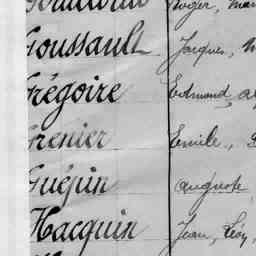 Roger,
Goussault Jacques,
Grégoire Edmond,
Grenier Emile,
Guépin auguste
Hacquin Jean, Léon,